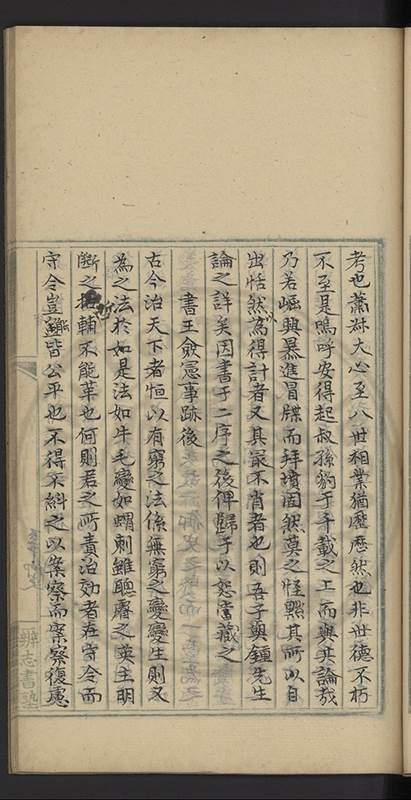 考也蕭㷊大心至八世相業猶歷歷然也非世德不朽
不至是嗚呼安得起叔孫豹于千載之上而與其論哉
乃若崛興暴進冒牒而拜墳固然莫之怪黙其所以自
出恬然為得計者又其最不肖者也則吾子與鍾先生
論之詳矣因書于二序之後俾歸于以恕當藏之
書王僉憲事跡後
古今治天下者恒以有窮之法係無窮之變變生則又
為之法於如是法如牛毛變如蝟刺雖聰睿之英主明
斷之輔不能革也何則君之所責治効者在守令而
守令豈能皆公平也不得不糾之以案察而案察復慮
辨志書塾